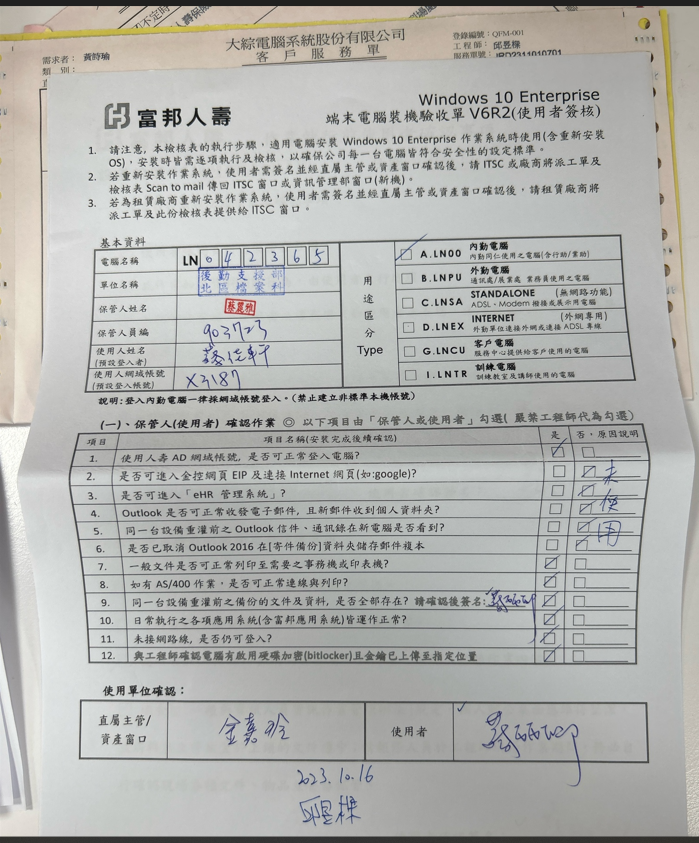 大綜電腦系統股份有限公司
客戶服務單
需求者：黃時瑜
類 別：
登錄編號：QFM-001
工程師：邱昱樑
服務單號：IRD2311010701
富邦人壽
Windows 10 Enterprise
端末電腦裝機驗收單 V6R2(使用者簽核)
1. 請注意, 本檢核表的執行步驟，適用電腦安裝 Windows 10 Enterprise 作業系統時使用(含重新安裝
OS)，安裝時皆需逐項執行及檢核，以確保公司每一台電腦皆符合安全性的設定標準。
2. 若重新安裝作業系統，使用者需簽名並經直屬主管或資產窗口確認後，請 ITSC 或廠商將派工單及
檢核表 Scan to mail 傳回 ITSC 窗口或資訊管理部窗口(新機)。
3. 若為租賃廠商重新安裝作業系統，使用者需簽名並經直屬主管或資產窗口確認後，請租賃廠商將
派工單及此份檢核表提供給 ITSC 窗口。
基本資料
電腦名稱 LN 0 4 2 3 6 5
單位名稱 後勤支援部
北區檔案科
保管人姓名
保管人員編 903723
使用人姓名
(預設登入者)
使用人網域帳號 X3187
(預設登入帳號)
用途區分
Type
A.LN00 內勤電腦
內勤同仁使用之電腦(含行動/業助)
B.LNPU 外勤電腦
通訊處/展業處 業務員使用之電腦
C.LNSA STANDALONE (無網路功能)
ADSL、Modem 撥接或展示用電腦
D.LNEX INTERNET (外網專用)
外勤單位連接外網或連接 ADSL 專線
G.LNCU 客戶電腦
服務中心提供給客戶使用的電腦
I.LNTR 訓練電腦
訓練教室及講師使用的電腦
說明:登入內勤電腦一律採網域帳號登入。(禁止建立非標準本機帳號)
(一)、保管人(使用者) 確認作業 ◎ 以下項目由「保管人或使用者」勾選( 嚴禁工程師代為勾選)
項目 項目名稱(安裝完成後續確認) 是 否，原因說明
1. 使用人壽 AD 網域帳號, 是否可正常登入電腦?
2. 是否可進入金控網頁 EIP 及連接 Internet 網頁(如:google)? 未
3. 是否可進入「eHR 管理系統」?
4. Outlook 是否可正常收發電子郵件, 且新郵件收到個人資料夾? 使
5. 同一台設備重灌前之 Outlook 信件、通訊錄在新電腦是否看到? 用
6. 是否已取消 Outlook 2016 在[寄件備份]資料夾儲存郵件複本
7. 一般文件是否可正常列印至需要之事務機或印表機?
8. 如有 AS/400 作業，是否可正常連線與列印?
9. 同一台設備重灌前之備份的文件及資料, 是否全部存在? 請確認後簽名:
10. 日常執行之各項應用系統(含富邦應用系統)皆運作正常?
11. 未接網路線, 是否仍可登入?
12. 與工程師確認電腦有啟用硬碟加密(bitlocker)且金鑰已上傳至指定位置
使用單位確認：
直屬主管/
資產窗口
使用者
2023.10.16
邱昱樑